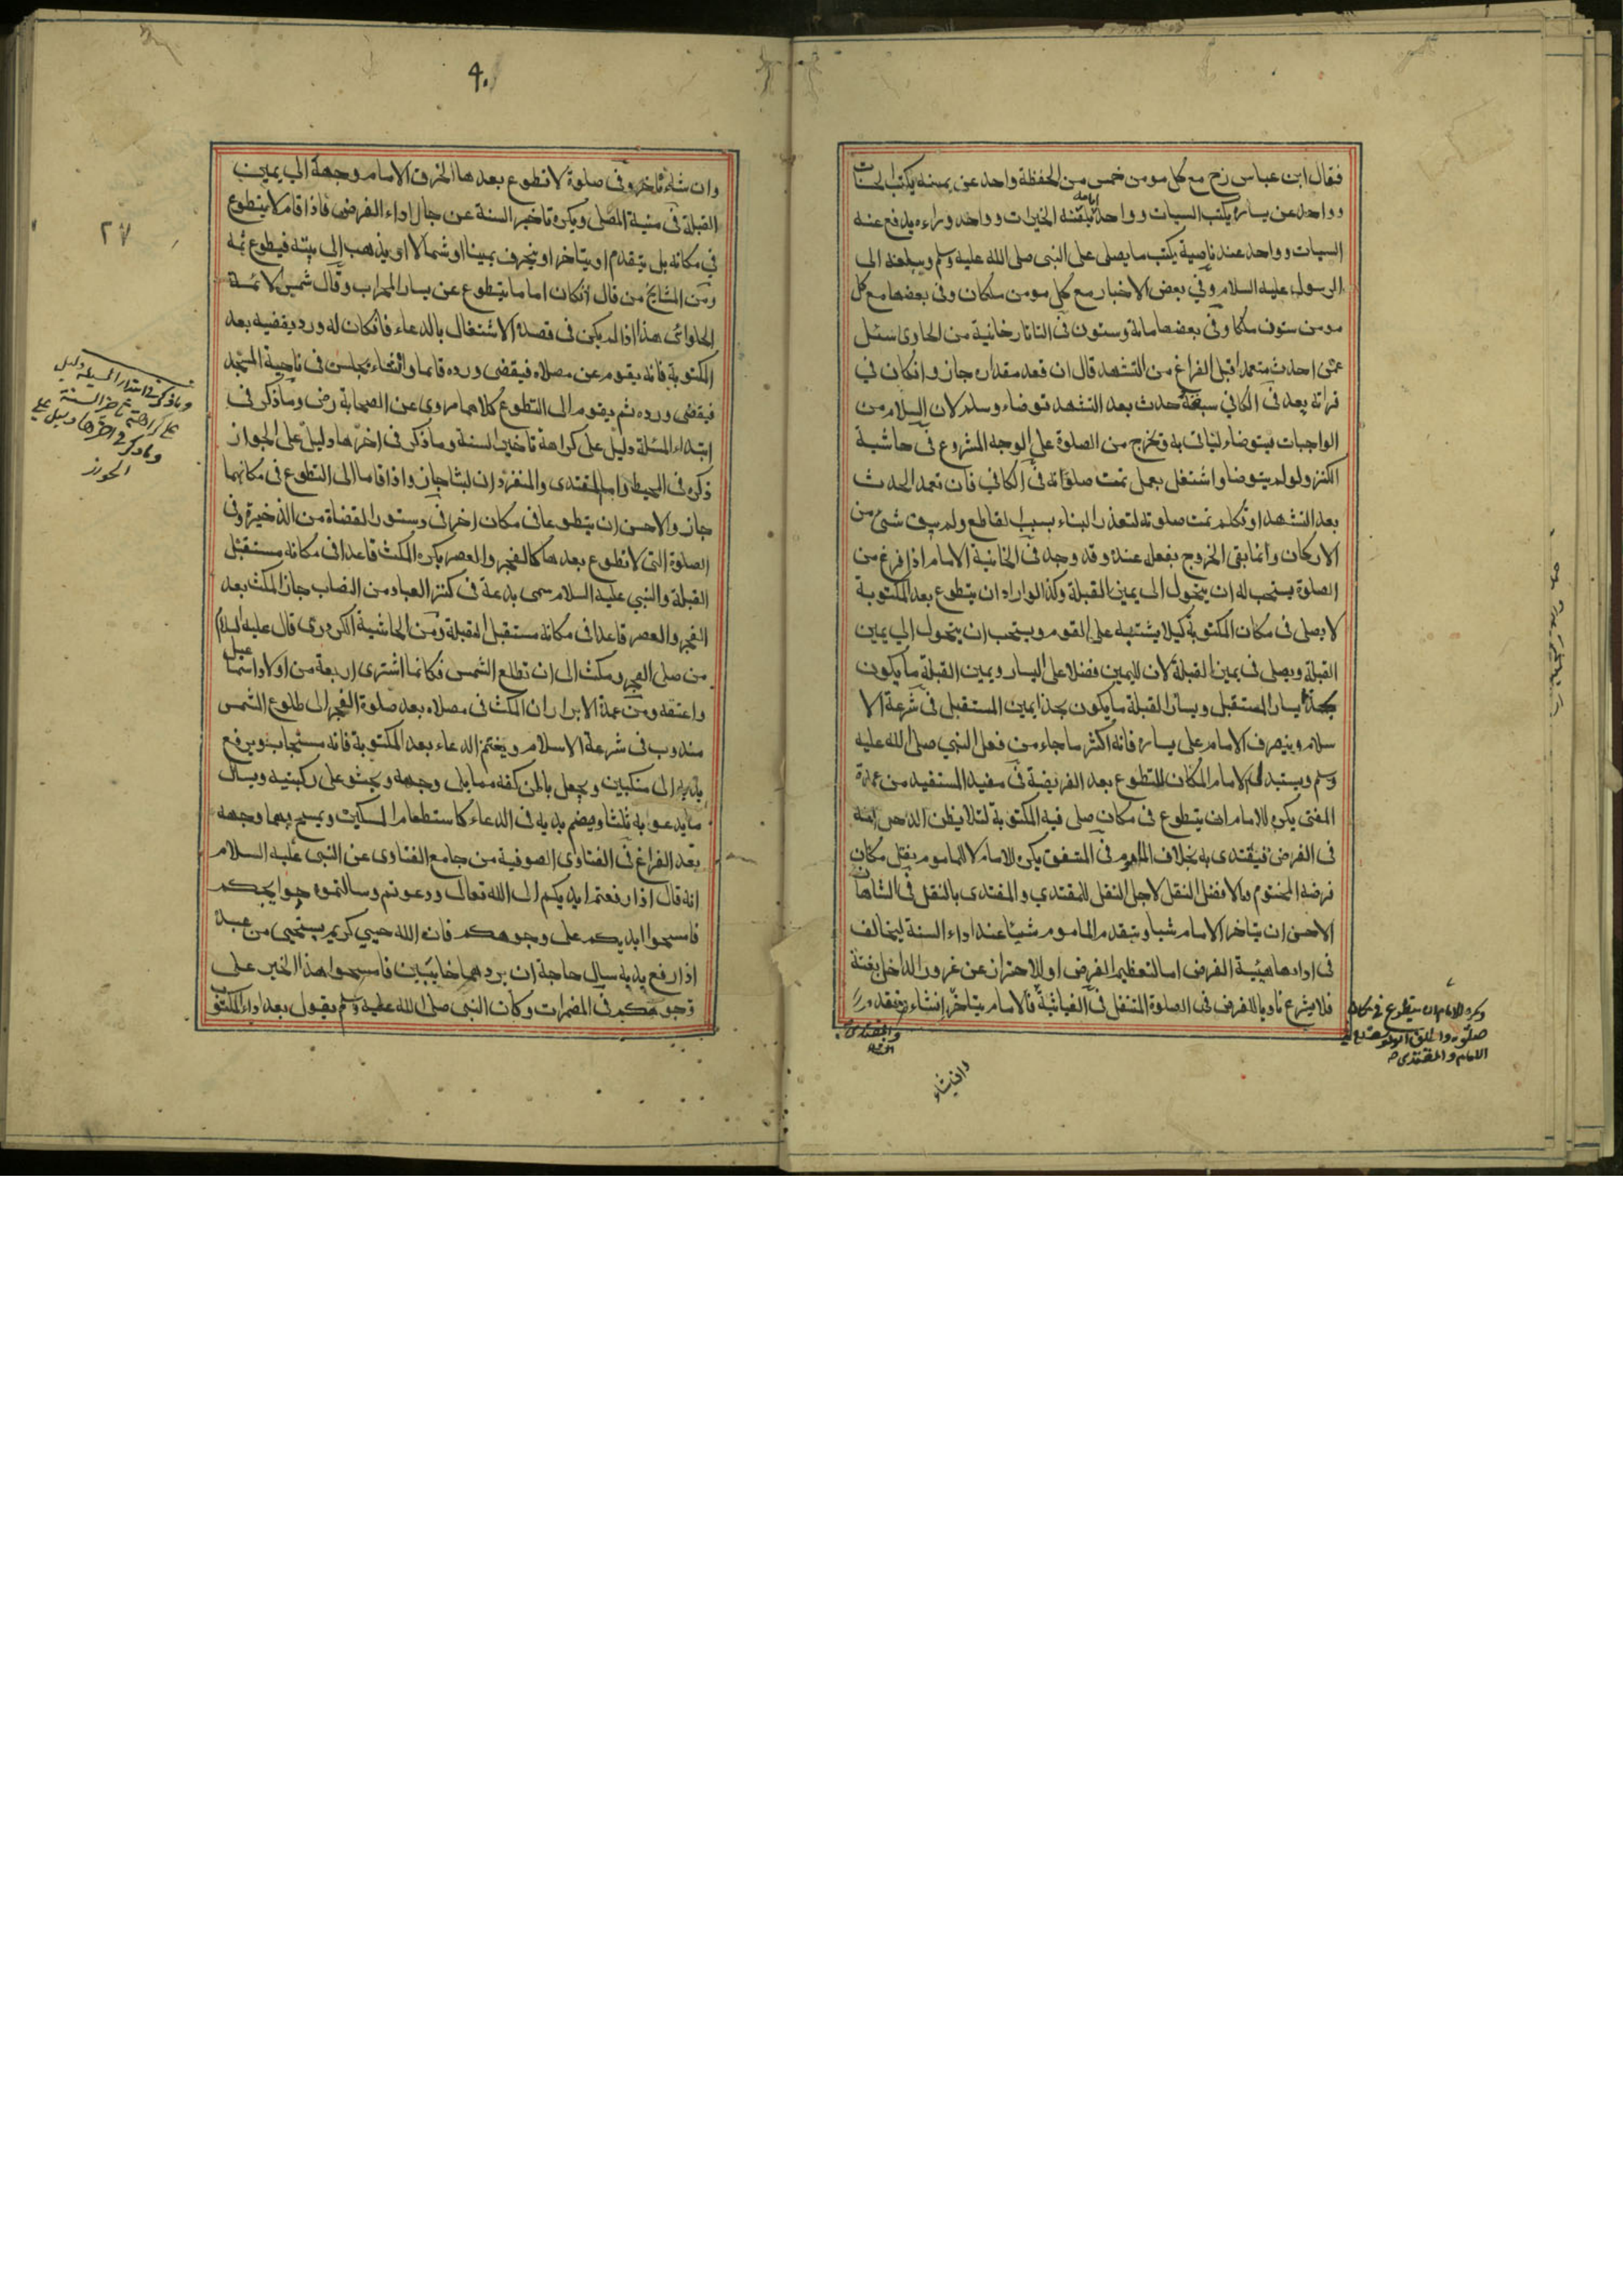 فقال ابن عباس رح مع كل مومن خمس من الحفظة واحد عن يمينه يكتب الحسنات
وواحد عن يساره يكتب السيات وواحد امامه يلقنه الخيرات وواحد وراءه يدفع عنه
السيات وواحد عند ناصية يكتب ما يصلى على النبى صلى الله عليه وسلم ويبلغه الى
الرسول عليه السلام وفي بعض الاخبار مع كل مومن ملكان وفى بعضها مع كل
مومن ستون ملكا وفي بعضها ماية وستون فى التاتارخانية من الحاوى سئل
عمن احدث متعمدا قبل الفراغ من التشهد قال ان قعد مقداره جاز وانكان في
قراته بعد فى الكافي سبقه حدث بعد التشهد توضاء وسلم لان السلام من
الواجبات فيتوضاء لياتى به وتخرج من الصلوة على الوجه المشروع فى حاشية
الكنز ولو لم يتوضا واشتغل بعمل تمت صلوته فى الكافي فان تعمد الحدث
بعد التشهد او تكلم تمت صلوته لتعذر البناء بسبب القاطع ولم يبق شئ من
الاركان وانما بقى الخروج بفعل عنده وقد وجد فى الخانية الامام اذا فرغ من
الصلوة يستحب له ان يتحول الى يمين القبلة وكذا لو اراد ان يتطوع بعد المكتوبة
لا يصلى فى مكان المكتوبة كيلا يشتبه على القوم ويستحب ان يتحول الى يمين
القبلة ويصلى فى يمين القبلة لان لليمين فضلا على اليسار ويمين القبلة ما يكون
بحذا يسار المستقبل ويسار القبلة ما يكون بحذا يمين المستقبل فى شرعة الا
سلام وينصرف الامام على يساره فانه اكثر ما جاء من فعل النبي صلى الله عليه
وسلم ويستبدل الامام المكان للتطوع بعد الفريضة فى مفيد المستفيد من عمدة
المفتى يكره للامام ان يتطوع فى مكان صلى فيه المكتوبة لئلا يظن الداخل انه
فى الفرض فيقتدى به بخلاف الماموم فى المتفق يكره للامام لا للماموم
فرضه المختوم الافضل النقل لاجل النفل للمقتدي والمقتدى بالنقل فى الشاهان
الاحسن ان يتاخر الامام شيا ويتقدم الماموم شيئا عند اداء السنة ليخالف
فى ادادها هيئية الفرض اما لتعظيم الفرض او للاحتراز عن غرور الداخل بغتة
فلا يشرع ناويا للفرض فى الصلوة المتنفل فى الغياثية فالامام يتاخر انشاء
ويكره للامام ان يتطوع فى مكان
الامام والمقتدى
وانشاء
٩٠
٢٧
وان شاء تاخر وفى صلوة لا تطوع بعدها انحرف الامام وجهه الى يمين
القبلة فى منية المصلى ويكره تاخير السنة عن حال اداء الفرض فاذا قام لا يتطوع
في مكانه بل يتقدم او يتاخر او ينحرف يمينا او شمالا او يذهب الى بيته فيطوع ثمه
ومن المشايخ من قال انكان اماما يتطوع عن يسار المحراب وقال شمس الائمة
الحلوائى هذا اذا لم يكن فى قصده الاشتغال بالدعاء فانكان له ورد يقضيه بعد
المكتوبة فانه يقوم عن مصلاه فيقضى ورده قايما وانشاء يجلس فى ناحية المسجد
فيقضى ورده ثم يقوم الى التطوع كلاهما مروى عن الصحابة رض وما ذكر فى
ابتداء المسئلة دليل على كراهة تاخير السنة وما ذكر فى اخرها دليل على الجواز
ذكره فى المحيط واما المقتدى والمنفرد ان لبثا جاز واذا قاما الى التطوع فى مكانهما
جاز والاحسن ان يتطوعا فى مكان اخر فى دستور القضاة من الذخيرة وفى
الصلوة التى لا تطوع بعدها كالفجر والعصر يكره المكث قاعدا فى مكانه مستقبل
القبلة والنبي عليه السلام سمى بدعة فى كنز العباد من النصاب جاز المكث بعد
الفجر والعصر قاعدا فى مكانه مستقبل القبلة ومن الحاشية الكردرى قال عليه السلام
من صلى الفجر ومكث الى ان تطلع الشمس فكانما اشترى اربعة من اولاد اسمعيل
واعتقه ومن عمدة الابرار ان المكث فى مصلاه بعد صلوة الفجر الى طلوع الشمس
مندوب فى شرعة الاسلام ويغتنم الدعاء بعد المكتوبة فانه مستجاب ويرفع
يديه الى منكبين ويجعل باطن كفه مما يلى وجهه ويجثو على ركبتيه ويسال
ما يدعو به ثلثا ويضم يديه فى الدعاء كاستطعام المسكين ويمسح بهما وجهه
بعد الفراغ فى الفتاوى الصوفية من جامع الفتاوى عن النبى عليه السلام
انه قال اذا رفعتم ايديكم الى الله تعالى ودعوتم وسالتموه حوايجكم
فامسحوا ايديكم على وجوهكم فان الله حيي كريم يستحيى من عبد
اذا رفع يديه سال حاجة ان يردهما خايبين فامسحوا هذا الخير على
وجوهكم فى المضمرات وكان النبى صلى الله عليه وسلم يقول بعد اداء المكتوبة
وما ذكر فى ابتداء المسئلة دليل
على كراهة تاخير السنة
وما ذكر فى اخرها دليل على
الجواز